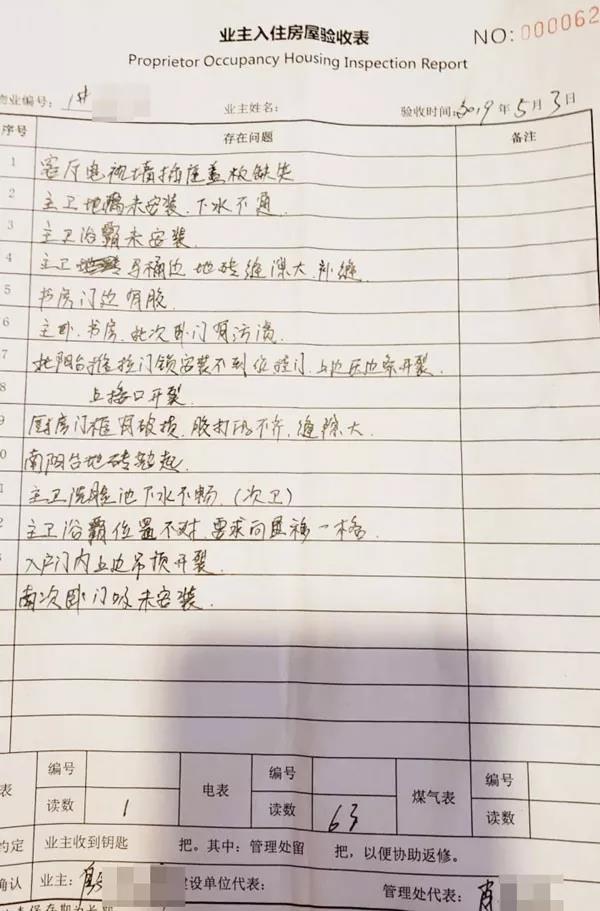 业主入住房屋验收表
NO: 000062
Proprietor Occupancy Housing Inspection Report
物业编号: 1# 业主姓名: 验收时间: 2019年5月3日
序号 存在问题 备注
1 客厅电视墙插座盖板缺失
2 主卫地漏未安装、下水不通
3 主卫浴霸未安装
4 主卫马桶边地砖缝隙大、补缝
5 书房门边有胶
6 主卧、书房、北次卧门有污渍
7 北阳台推拉门锁安装不到位 门、上边压边条开裂
8 上接口开裂
9 厨房门框有破损、胶打的不齐、缝隙大
0 南阳台地砖翘起
1 主卫洗脸池下水不畅、(次卫)
2 主卫浴霸位置不对、要求向里移一格
入户门内上边吊顶开裂
南次卧门吸未安装
表 编号 电表 编号 煤气表 编号
读数 1 读数 63 读数
约定 业主收到钥匙 把。其中: 管理处留 把, 以便协助返修。
确认 业主: 建设单位代表: 管理处代表: 肖